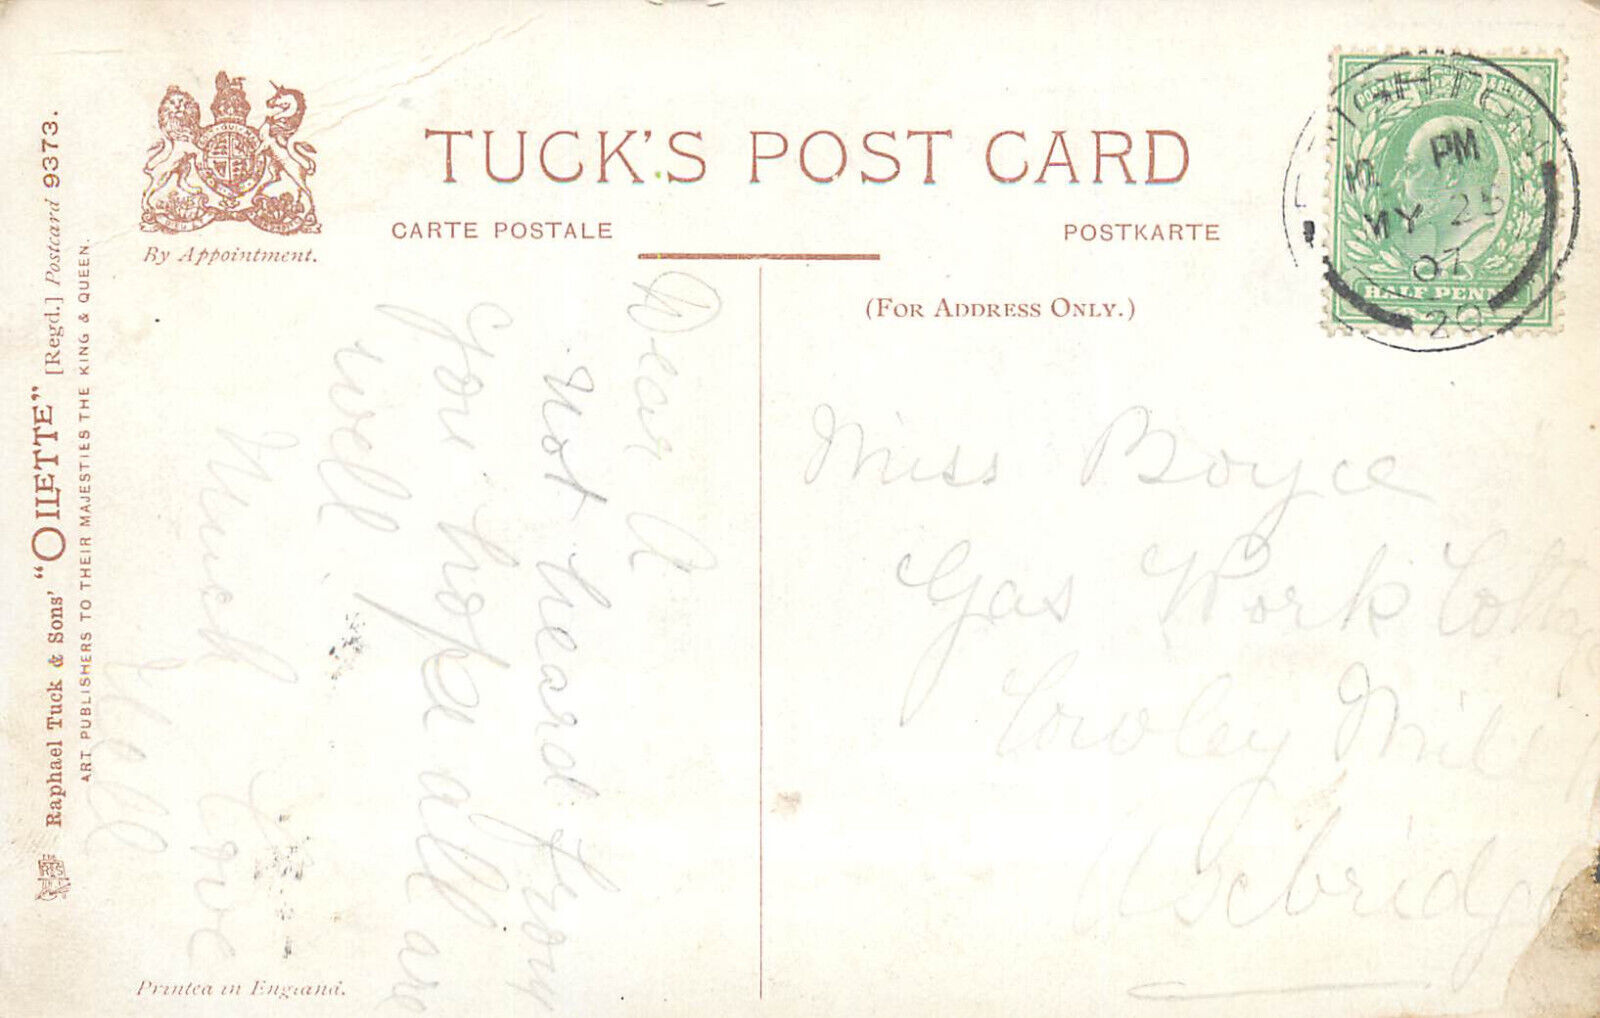 TUCK'S POST CARD
CARTE POSTALE
POSTKARTE
By Appointment.
(FOR ADDRESS ONLY.)
Raphael Tuck & Sons' "OILETTE" [Regd.] Postcard 9373.
ART PUBLISHERS TO THEIR MAJESTIES THE KING & QUEEN.
Printed in England.
HALF PENNY
BRIGHTON
PM
MY 25
07
20
Dear A
Not heard from
you hope all are
well
Much Love
Miss Boyce
Gas Work
Cowley Mill
Uxbridge